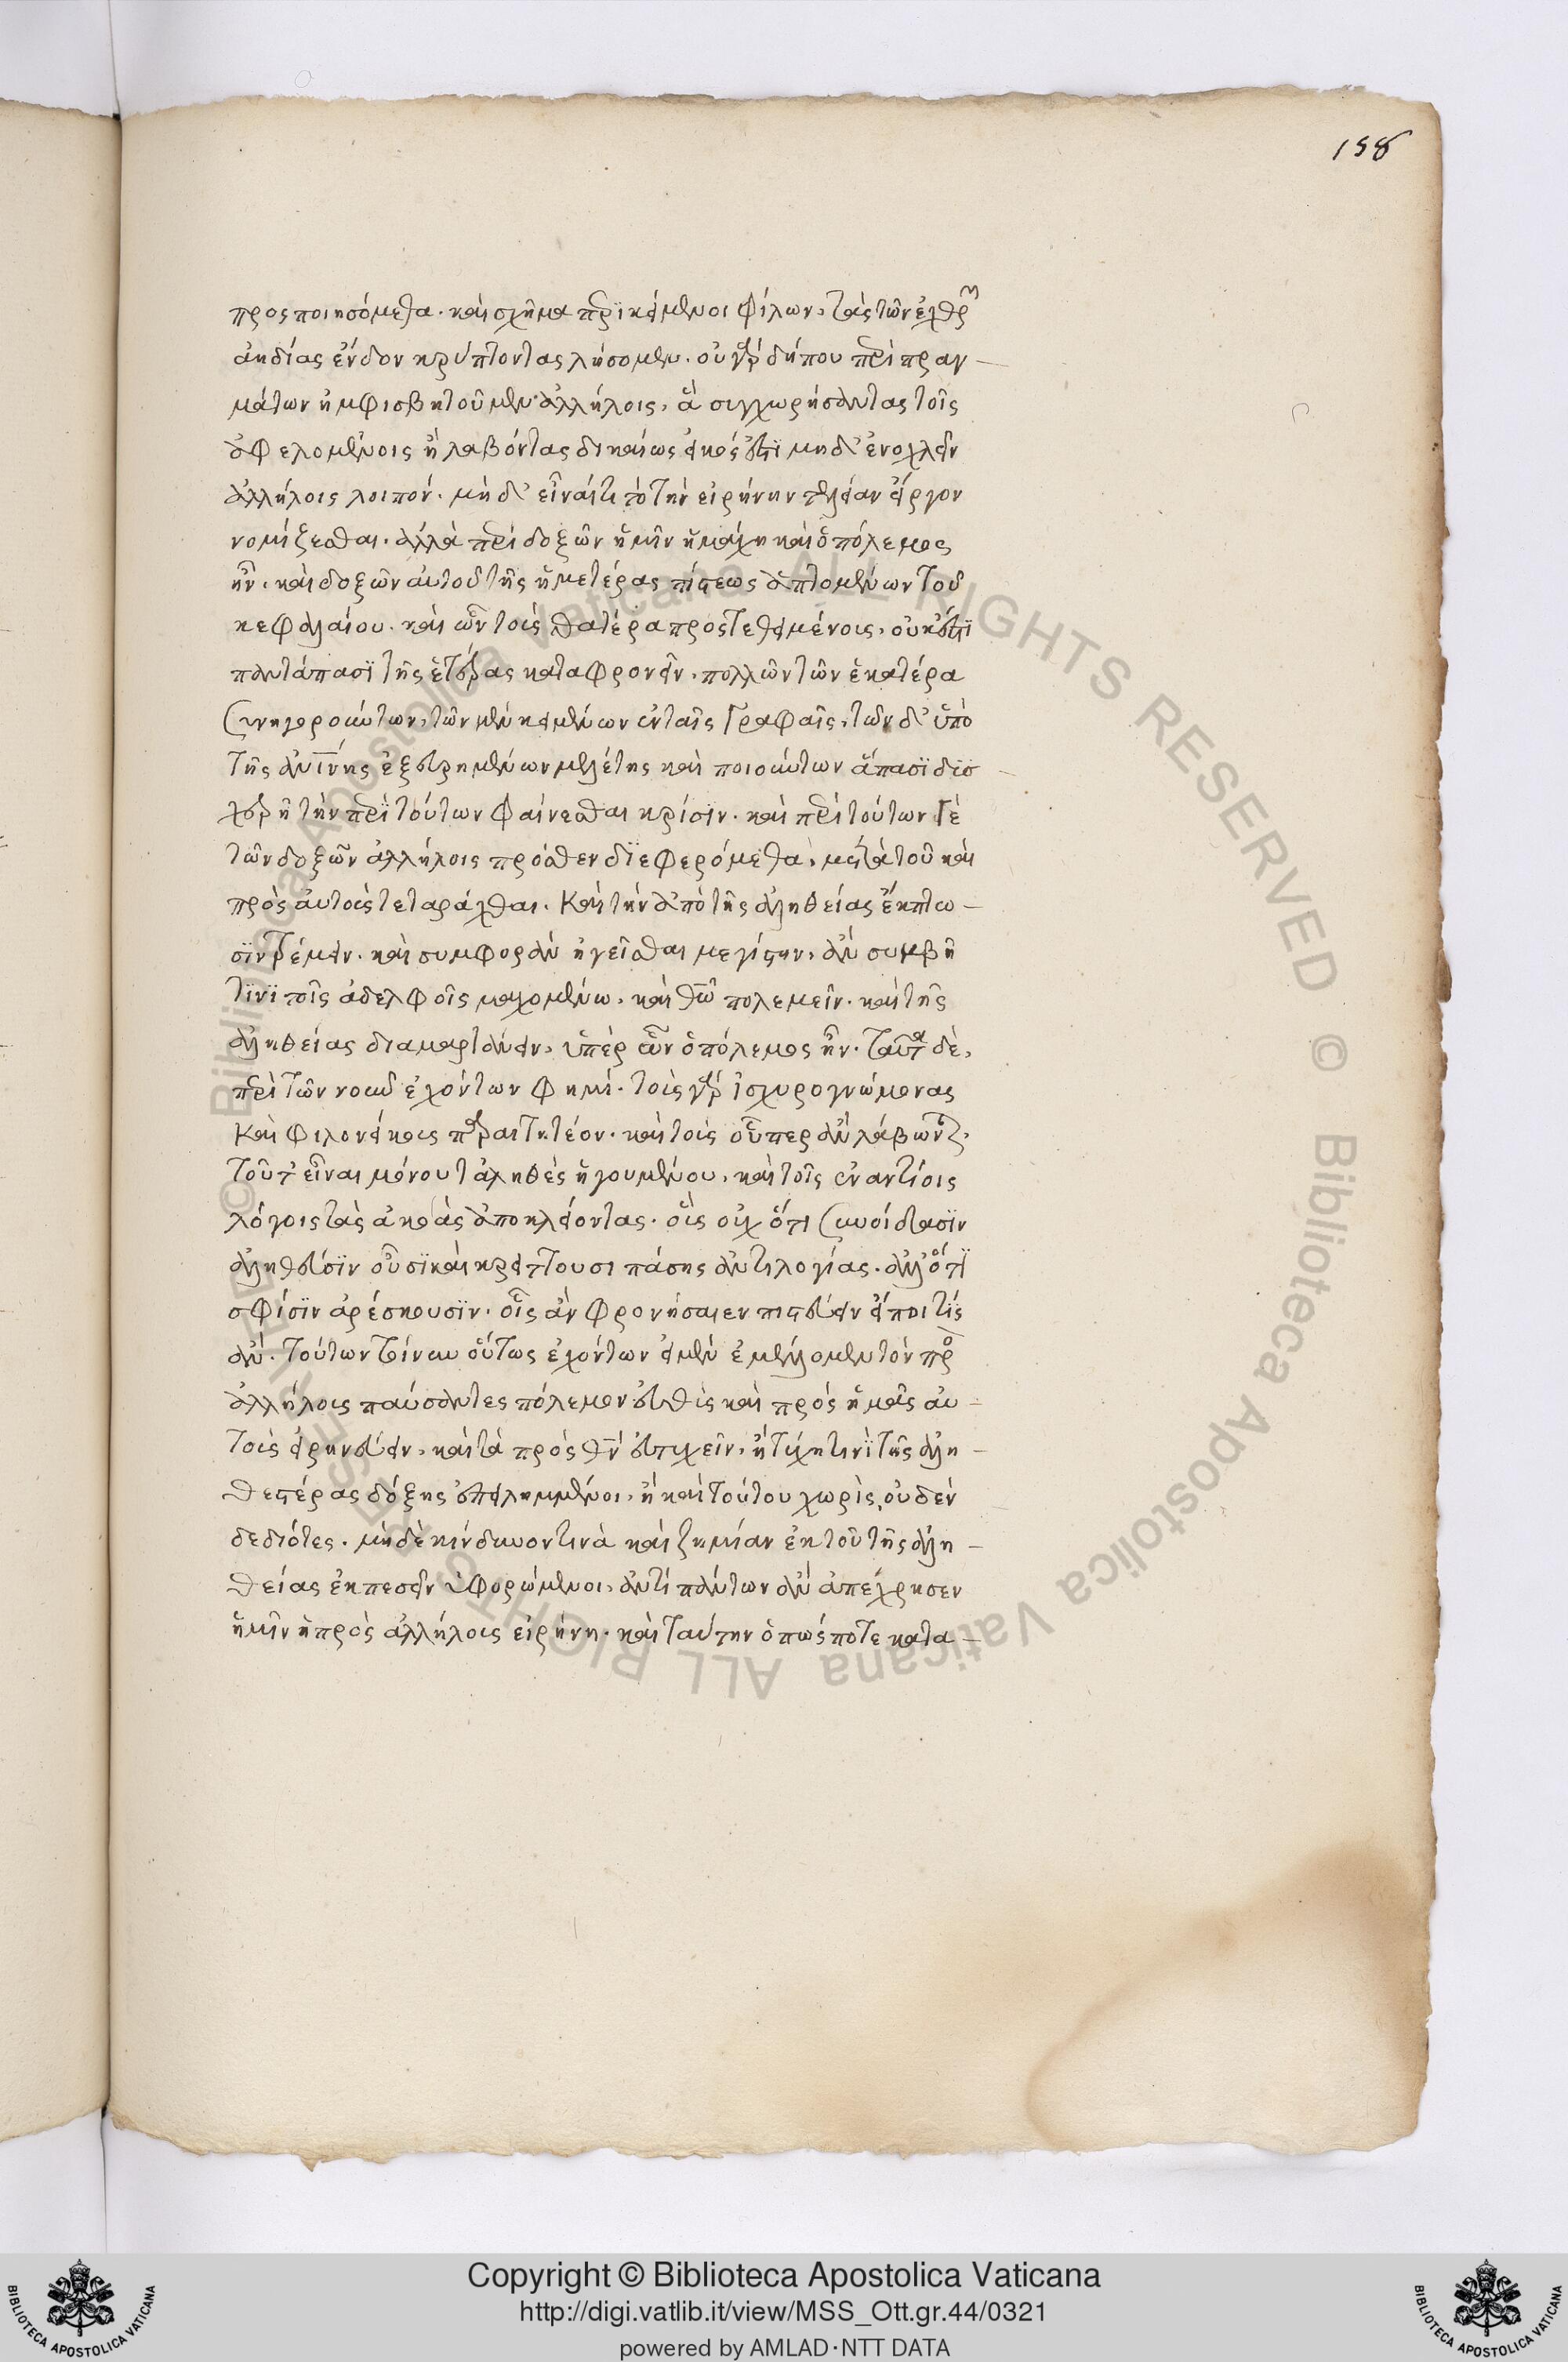 158
προσποιησόμεθα. καὶ σχῆμα περικείμενοι φίλων, τὰς τῶν ἐχθρῶν
ἀηδίας ἔνδον κρύπτοντας λήσομεν. οὐ γὰρ δήπου περὶ πραγ-
μάτων ἠμφισβητοῦμεν ἀλλήλοις, ἃ συγχωρήσαντας τοῖς
ὀφελομένοις ἢ λαβόντας δικαίως εἰκός ἐστι μηδ' ἐνοχλεῖν
ἀλλήλοις λοιπόν. μὴ δ' εἶναί τι τὸ τὴν εἰρήνην τελείαν ἔργον
νομίζεσθαι. ἀλλὰ περὶ δοξῶν ἡμῖν ἡ μάχη καὶ ὁ πόλεμος
ἦν. καὶ δοξῶν αὐτοῦ τῆς ἡμετέρας πίστεως ἁπτομένων τοῦ
κεφαλαίου. καὶ ὧν τοὺς θατέρα προστεθειμένους, οὐκ ἔστι
παντάπασι τῆς ἑτέρας καταφρονεῖν. πολλῶν τῶν ἑκατέρα
συνηγορούντων, τῶν μὲν κειμένων ἐν ταῖς γραφαῖς, τῶν δ' ὑπὸ
τῆς ἐξευρημένων μελέτης καὶ ποιούντων ἅπασι δυσ-
χερῆ τὴν περὶ τούτων φαίνεσθαι κρίσιν. καὶ περὶ τούτων γε
τῶν δοξῶν ἀλλήλοις πρόσθεν διεφερόμεθα, μετὰ τοῦ καὶ
πρὸς αὑτοὺς τεταράχθαι. καὶ τὴν ἀπὸ τῆς ἀληθείας ἔκπτω-
σιν τρέμειν. καὶ συμφορὰν ἡγεῖσθαι μεγίστην, ἂν συμβῇ
τινι τοῖς ἀδελφοῖς μαχομένω, καὶ θεῷ πολεμεῖν. καὶ τῆς
ἀληθείας διαμαρτάνειν, ὑπὲρ ὧν ὁ πόλεμος ἦν. ταῦτα δὲ,
περὶ τῶν νοῦν ἐχόντων φημί. τοὺς γὰρ ἰσχυρογνώμονας
καὶ φιλονείκους παραιτητέον. καὶ τοὺς οὗπερ ἂν λάβωνται,
τοῦτ' εἶναι μόνου τἀληθὲς ἡγουμένου, καὶ τοῖς ἐναντίοις
λόγοις τὰς ἀκοὰς ἀποκλείοντας. οἷς οὐχ ὅτι συνοίδασιν
ἀληθέσιν οὖσι καὶ κρείττουσι πάσης ἀντιλογίας. ἀλλ' ὅτι
σφίσιν ἀρέσκουσιν. οἷς ἂν φρονήσαιεν πιστεύειν εἴποι τίς
ἄν. τούτων τοίνυν οὕτως ἐχόντων εἰ μὲν ἐμέλλομεν τὸν πρὸς
ἀλλήλους παύσαντες πόλεμον εὐθὺς καὶ πρὸς ἡμᾶς αὐ-
τοὺς εἰρηνεύειν, καὶ τὰ πρὸς θεὸν εὐτυχεῖν, ἢ τύχη τινὶ τῆς ἀλη-
θεστέρας δόξης ἐπειλημμένοι, ἢ καὶ τούτου χωρὶς, οὐδὲν
δεδιότες. μὴ δὲ κίνδυνον τινὰ καὶ ζημίαν ἐκ τοῦ τῆς ἀλη-
θείας ἐκπεσεῖν ὑφορώμενοι, ἀντὶ πάντων ἂν ἀπέχρησεν
ἡμῖν ἡ πρὸς ἀλλήλους εἰρήνη. καὶ ταύτην ὁπώς ποτε κατα-
© Biblioteca Apostolica Vaticana ALL RIGHTS RESERVED
Copyright © Biblioteca Apostolica Vaticana
http://digi.vatlib.it/view/MSS_Ott.gr.44/0321
powered by AMLAD·NTT DATA
BIBLIOTECA APOSTOLICA VATICANA
BIBLIOTECA APOSTOLICA VATICANA